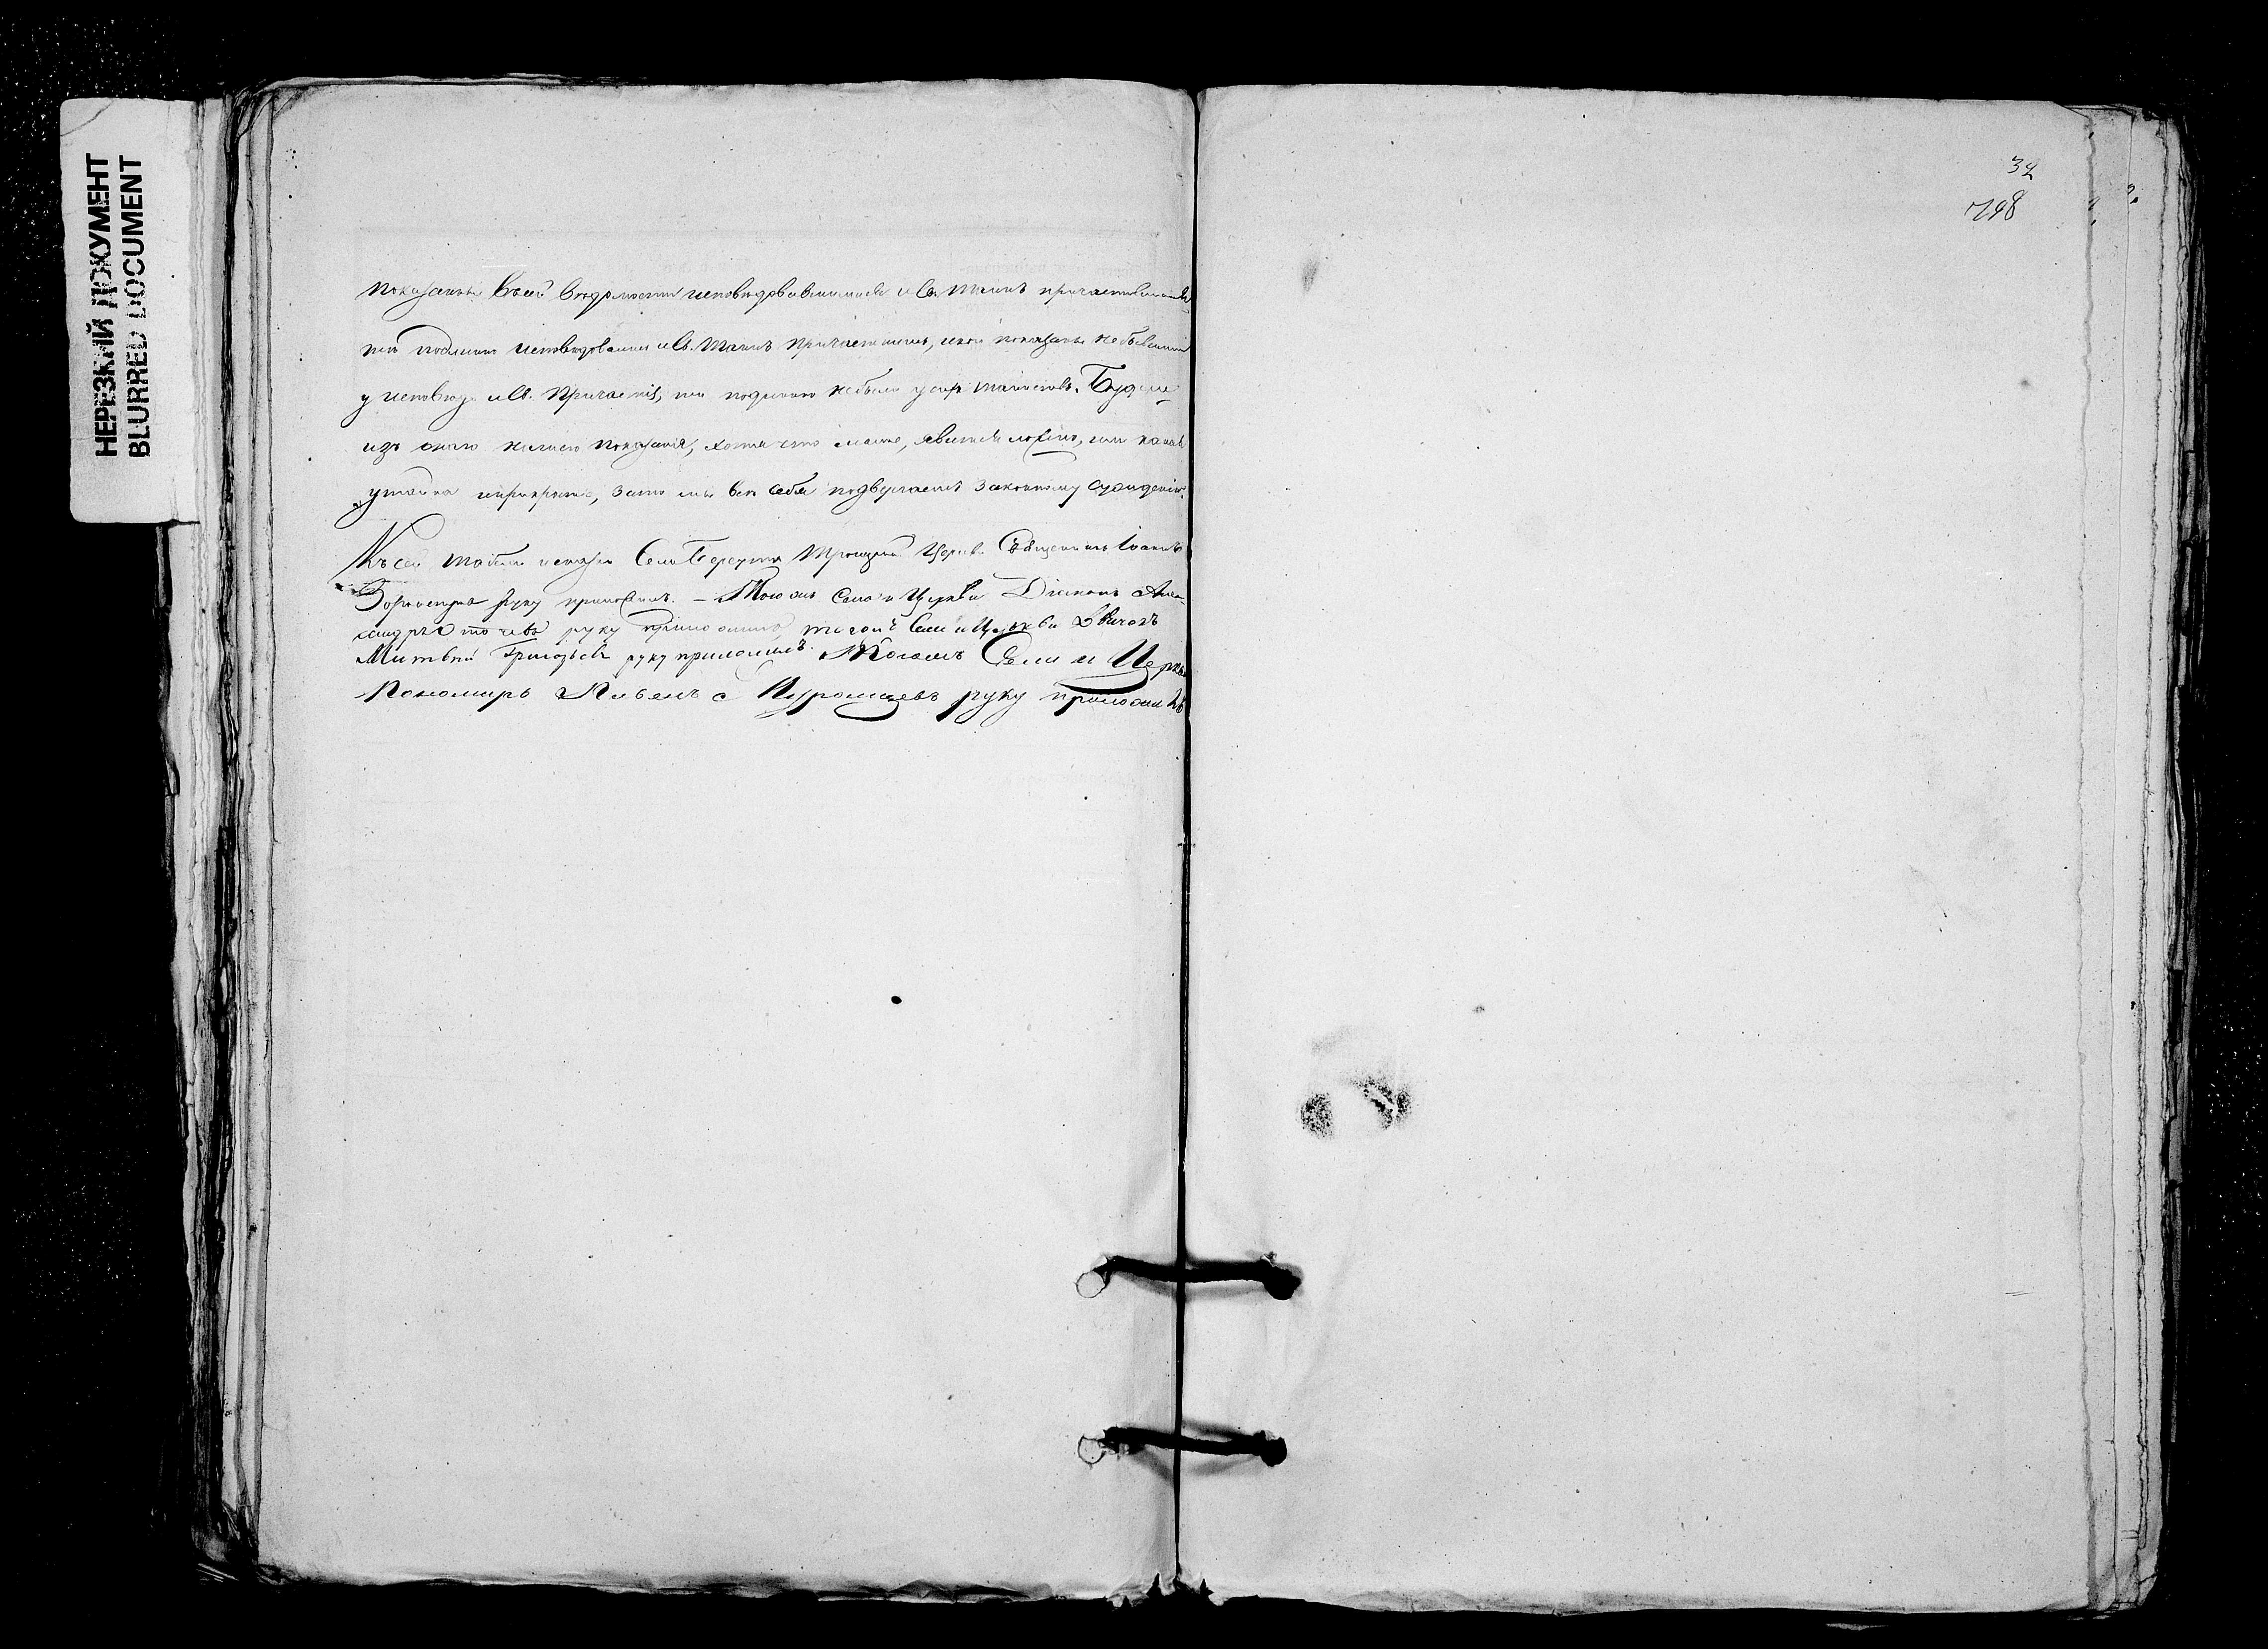 НЕРЕЗКИЙ ДОКУМЕНТ
BLURRED DOCUMENT
показаны въ сей вѣдомости исповѣдовавшимися и Св. Таинъ
тѣ подлинно исповѣдовались и Св. Таинъ причастились, и кои показаны не бывшими
у исповѣди и Св. Причастія, тѣ подлинно не были у сихъ таинствъ. Буде же
изъ онаго нашего показанія, хотя что малое, явится ложно, или какая
утайка и прикрыто, за то мы все себя подвергаемъ законному сужденію.
Къ сей Села Троицкой Церкви Священникъ Іоаннъ
руку приложилъ. – Тогожъ Села и Церкви Діаконъ Алек-
сандръ руку приложилъ, тогожъ Села и Церкви Дьячокъ
Матвѣй Григорьевъ руку приложилъ. Тогожъ Села и Церкви
Пономарь руку приложилъ
32
798